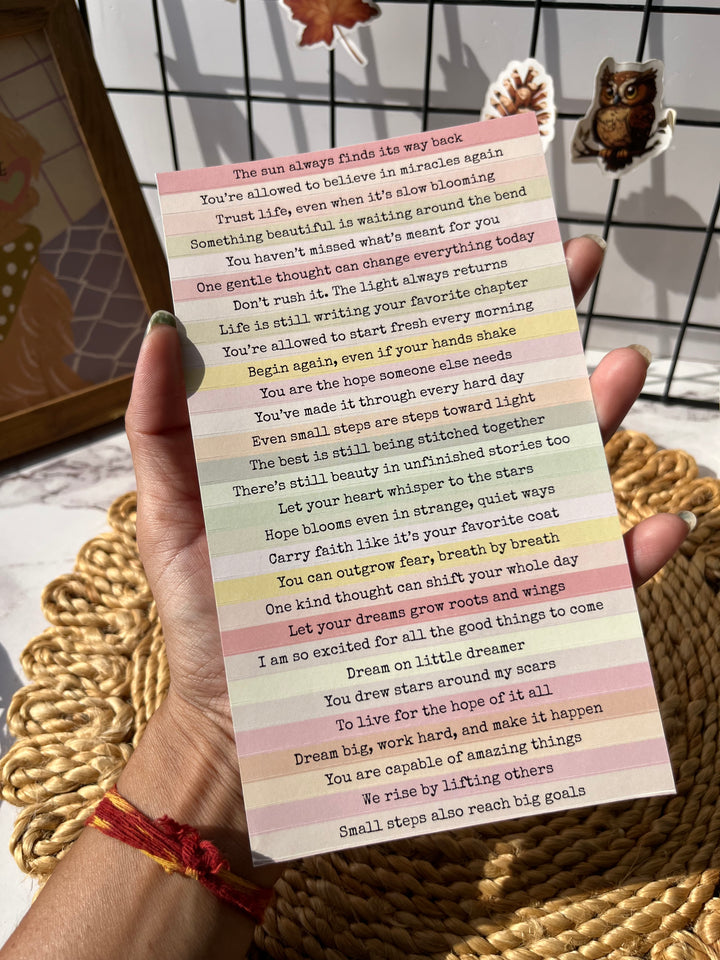 The sun always finds its way back
You're allowed to believe in miracles again
Trust life, even when it's slow blooming
Something beautiful is waiting around the bend
You haven't missed what's meant for you
One gentle thought can change everything today
Don't rush it. The light always returns
Life is still writing your favorite chapter
You're allowed to start fresh every morning
Begin again, even if your hands shake
You are the hope someone else needs
You've made it through every hard day
Even small steps are steps toward light
The best is still being stitched together
There's still beauty in unfinished stories too
Let your heart whisper to the stars
Hope blooms even in strange, quiet ways
Carry faith like it's your favorite coat
You can outgrow fear, breath by breath
One kind thought can shift your whole day
Let your dreams grow roots and wings
I am so excited for all the good things to come
Dream on little dreamer
You drew stars around my scars
To live for the hope of it all
Dream big, work hard, and make it happen
You are capable of amazing things
We rise by lifting others
Small steps also reach big goals